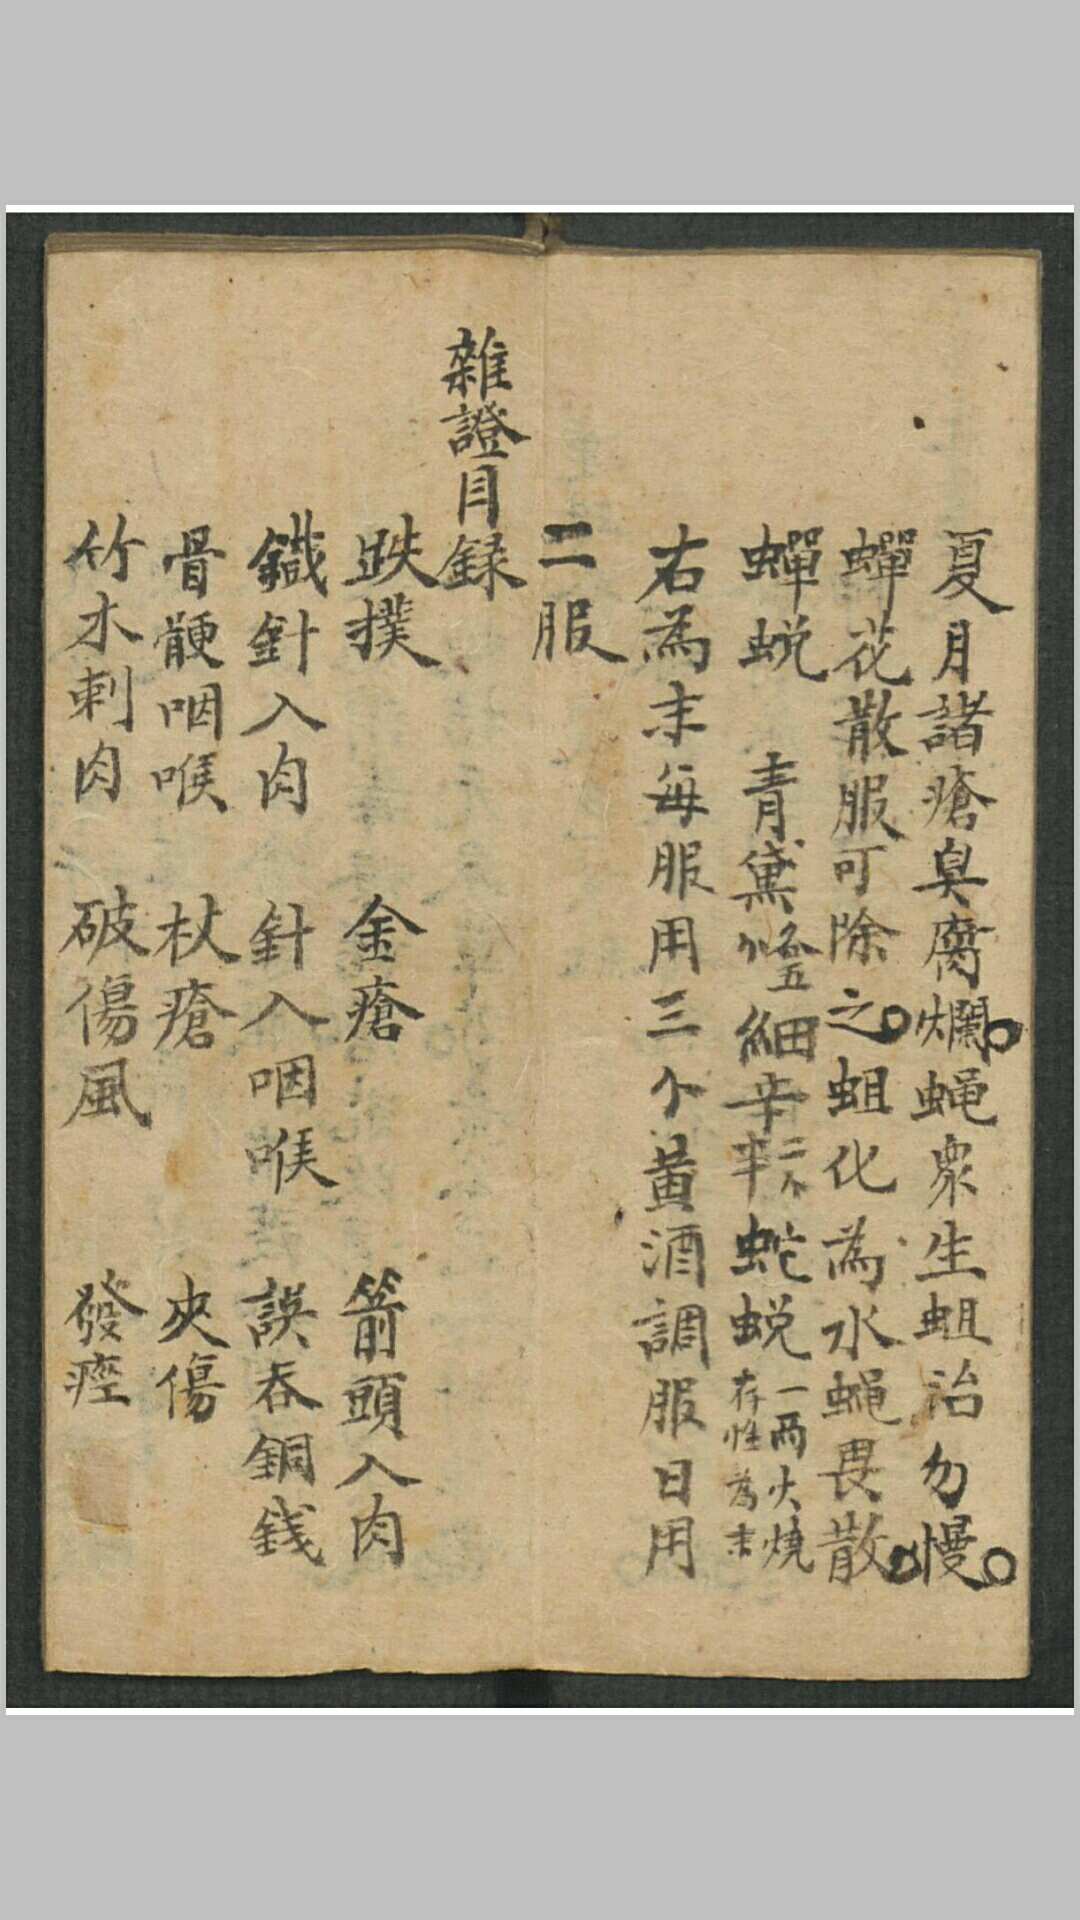 夏月諸瘡臭腐爛蝇眾生蛆治勿慢
蟬花散服可除之蛆化為水蝇畏散
蟬蜕 青黛 細辛 蛇蜕一兩火燒存性為末
右為末每服用三个黃酒調服日用
二服
雜證目録
跌撲 金瘡 箭頭入肉
鐵針入肉 針入咽喉 誤吞銅錢
骨骾咽喉 杖瘡 夾傷
竹木刺肉 破傷風 發痙